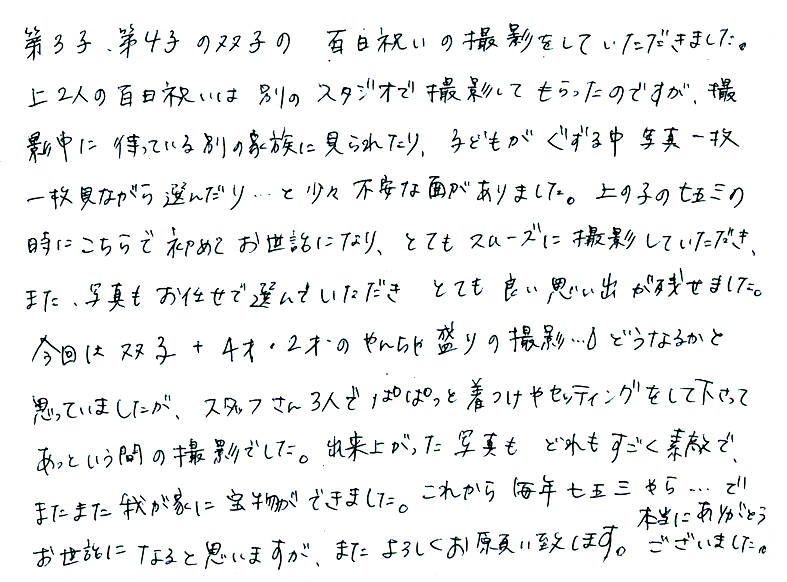 第3子、第4子の双子の 百日祝いの撮影をしていただきました。
上2人の百日祝いは 別のスタジオで撮影して もらったのですが、撮
影中に 待っている別の家族に見られたり、子どもが ぐずる中 写真一枚
一枚見ながら選んだり…と少々 不安な面がありました。上の子の七五三の
時にこちらで 初めて お世話になり、とても スムーズに 撮影していただき、
また、写真も お任せで選んでいただき とても 良い 思い出 が残せました。
今回は 双子 + 4才・2才のやんちゃ盛りの撮影…💧どうなるかと
思っていましたが、スタッフさん3人で ぱぱっと 着つけやセッティングをして下さって
あっという間の撮影でした。出来上がった 写真も どれもすごく素敵で、
またまた我が家に宝物ができました。これから 毎年七五三やら…で
お世話に なると思いますが、また よろしくお願い致します。本当にありがとう
ございました。